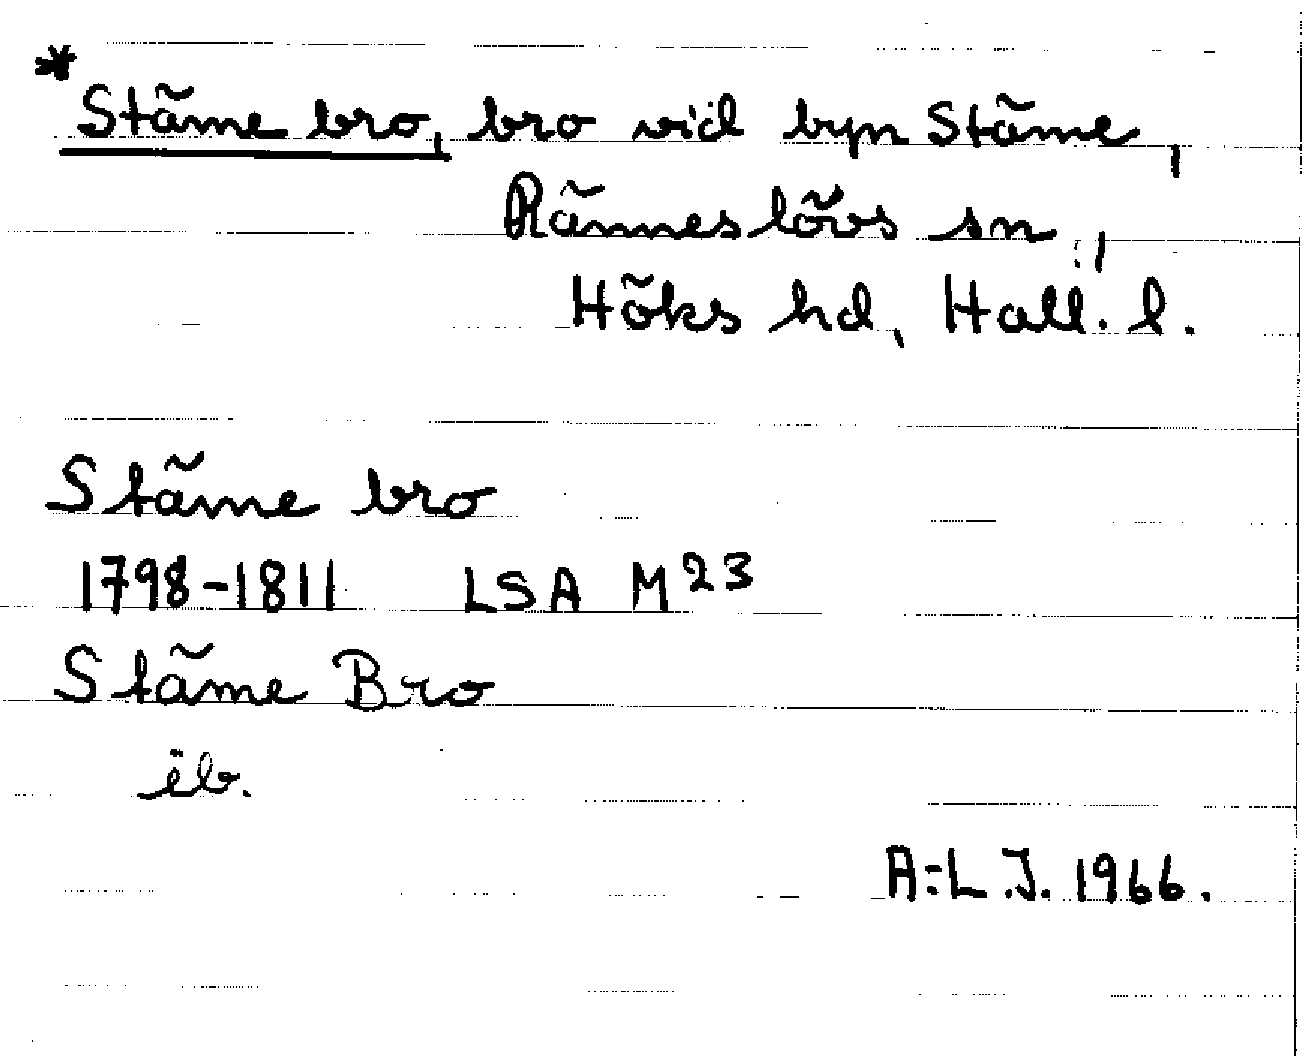 * Stäme bro, bro vid byn Stäme,
Ränneslövs sn.,
Höks hd, Hall. l.
Stäme bro
1798-1811 LSA M23
Stäme Bro
ib.
A:L.J. 1966.